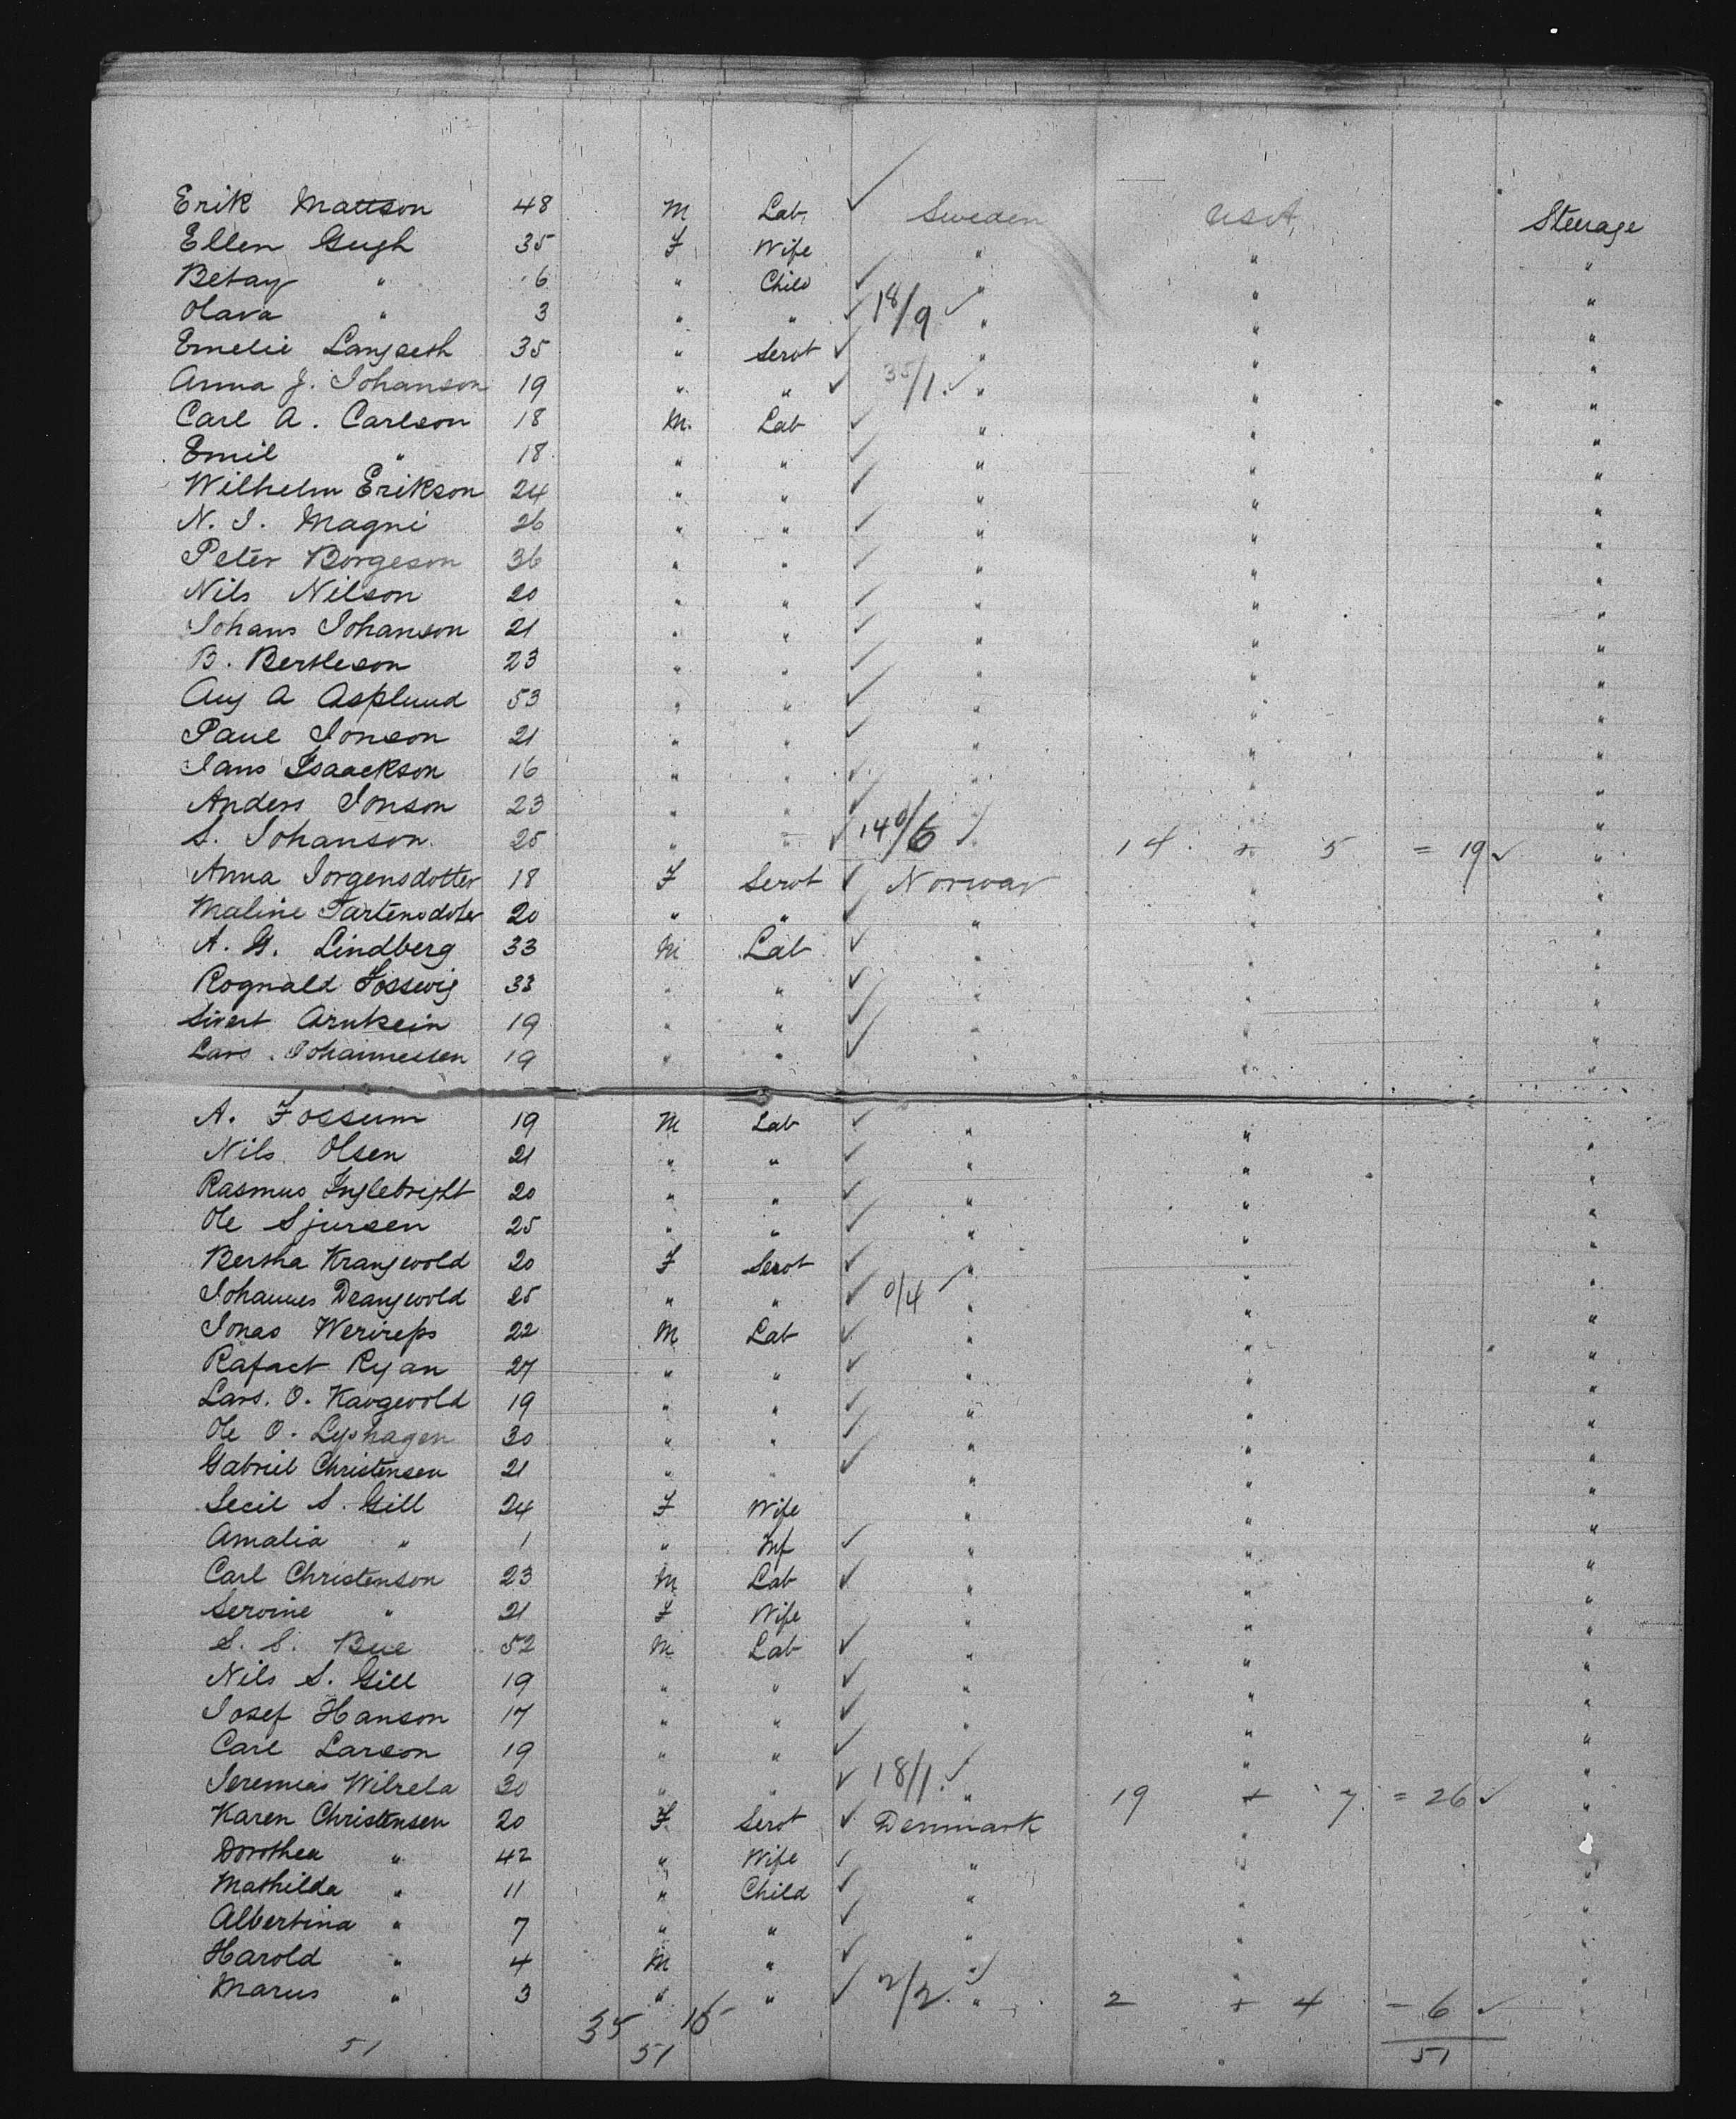 Erik Mattson 48 M Lab. ✓ Sweden USA. Steerage
Ellen Gugh 35 F Wife " " "
Betay " 6 " Child ✓ " " "
Olava " 3 " " ✓ 18/9 ✓ " " "
Emelie Langseth 35 " Servt ✓ " " "
Anna J. Johanson 19 " " ✓ 35/1. ✓ " " "
Carl A. Carlson 18 M. Lab ✓ " " "
Emil " 18 " " ✓ " " "
Wilhelm Erikson 24 " " ✓ " " "
N. J. Magni 26 " " ✓ " " "
Peter Borgeson 36 " " ✓ " " "
Nils Nilson 20 " " ✓ " " "
Johans Johanson 21 " " ✓ " " "
B. Bertleson 23 " " ✓ " " "
Aug A Asplund 53 " " ✓ " " "
Paul Jonson 21 " " ✓ " " "
Jans Isaackson 16 " " ✓ " " "
Anders Jonson 23 " " ✓ " " "
S. Johanson. 25 " " ✓ 140/6 ✓ 14 + 5 = 19 ✓ "
Anna Jorgensdotter 18 F Servt ✓ Norway " "
Maline Tartensdoter 20 " " ✓ " " "
A. G. Lindberg 33 M Lab ✓ " " "
Rognald Fosswig 33 " " ✓ " " "
Sivert Arnksein 19 " " ✓ " " "
Lars Johannessen 19 " " ✓ " " "
A. Fossum 19 M Lab ✓ " " "
Nils Olsen 21 " " ✓ " " "
Rasmus Inglebright 20 " " ✓ " " "
Ole Sjursen 25 " " ✓ " " "
Bertha Krangwold 20 F Servt ✓ " " "
Johannes Drangwold 25 " " ✓ 0/4 ✓ " " "
Jonas Werireps 22 M Lab ✓ " " "
Rafact Ryan 27 " " ✓ " " "
Lars. O. Kavgevold 19 " " ✓ " " "
Ole O. Lyshagen 30 " " ✓ " " "
Gabriel Christensen 21 " " ✓ " " "
Secil S. Gill 24 F Wife " " "
Amalia " 1 " Inf ✓ " " "
Carl Christenson 23 M Lab ✓ " " "
Servine " 21 F Wife " " "
S. S. Bue 52 M Lab ✓ " " "
Nils S. Gill 19 " " ✓ " " "
Josef Hanson 17 " " ✓ " " "
Carl Larson 19 " " ✓ " " "
Jeremias Wilrela 30 " " ✓ 18/1. ✓ " 19 + 7 = 26 ✓ "
Karen Christensen 20 F. Servt ✓ Denmark " "
Dorothea " 42 " Wife ✓ " " "
Mathilda " 11 " Child ✓ " " "
Albertina " 7 " " ✓ " " "
Harold " 4 M " ✓ " " "
Marus " 3 " " ✓ 2/2. " 2 + 4 - 6 ✓ "
51 35 16 51 51